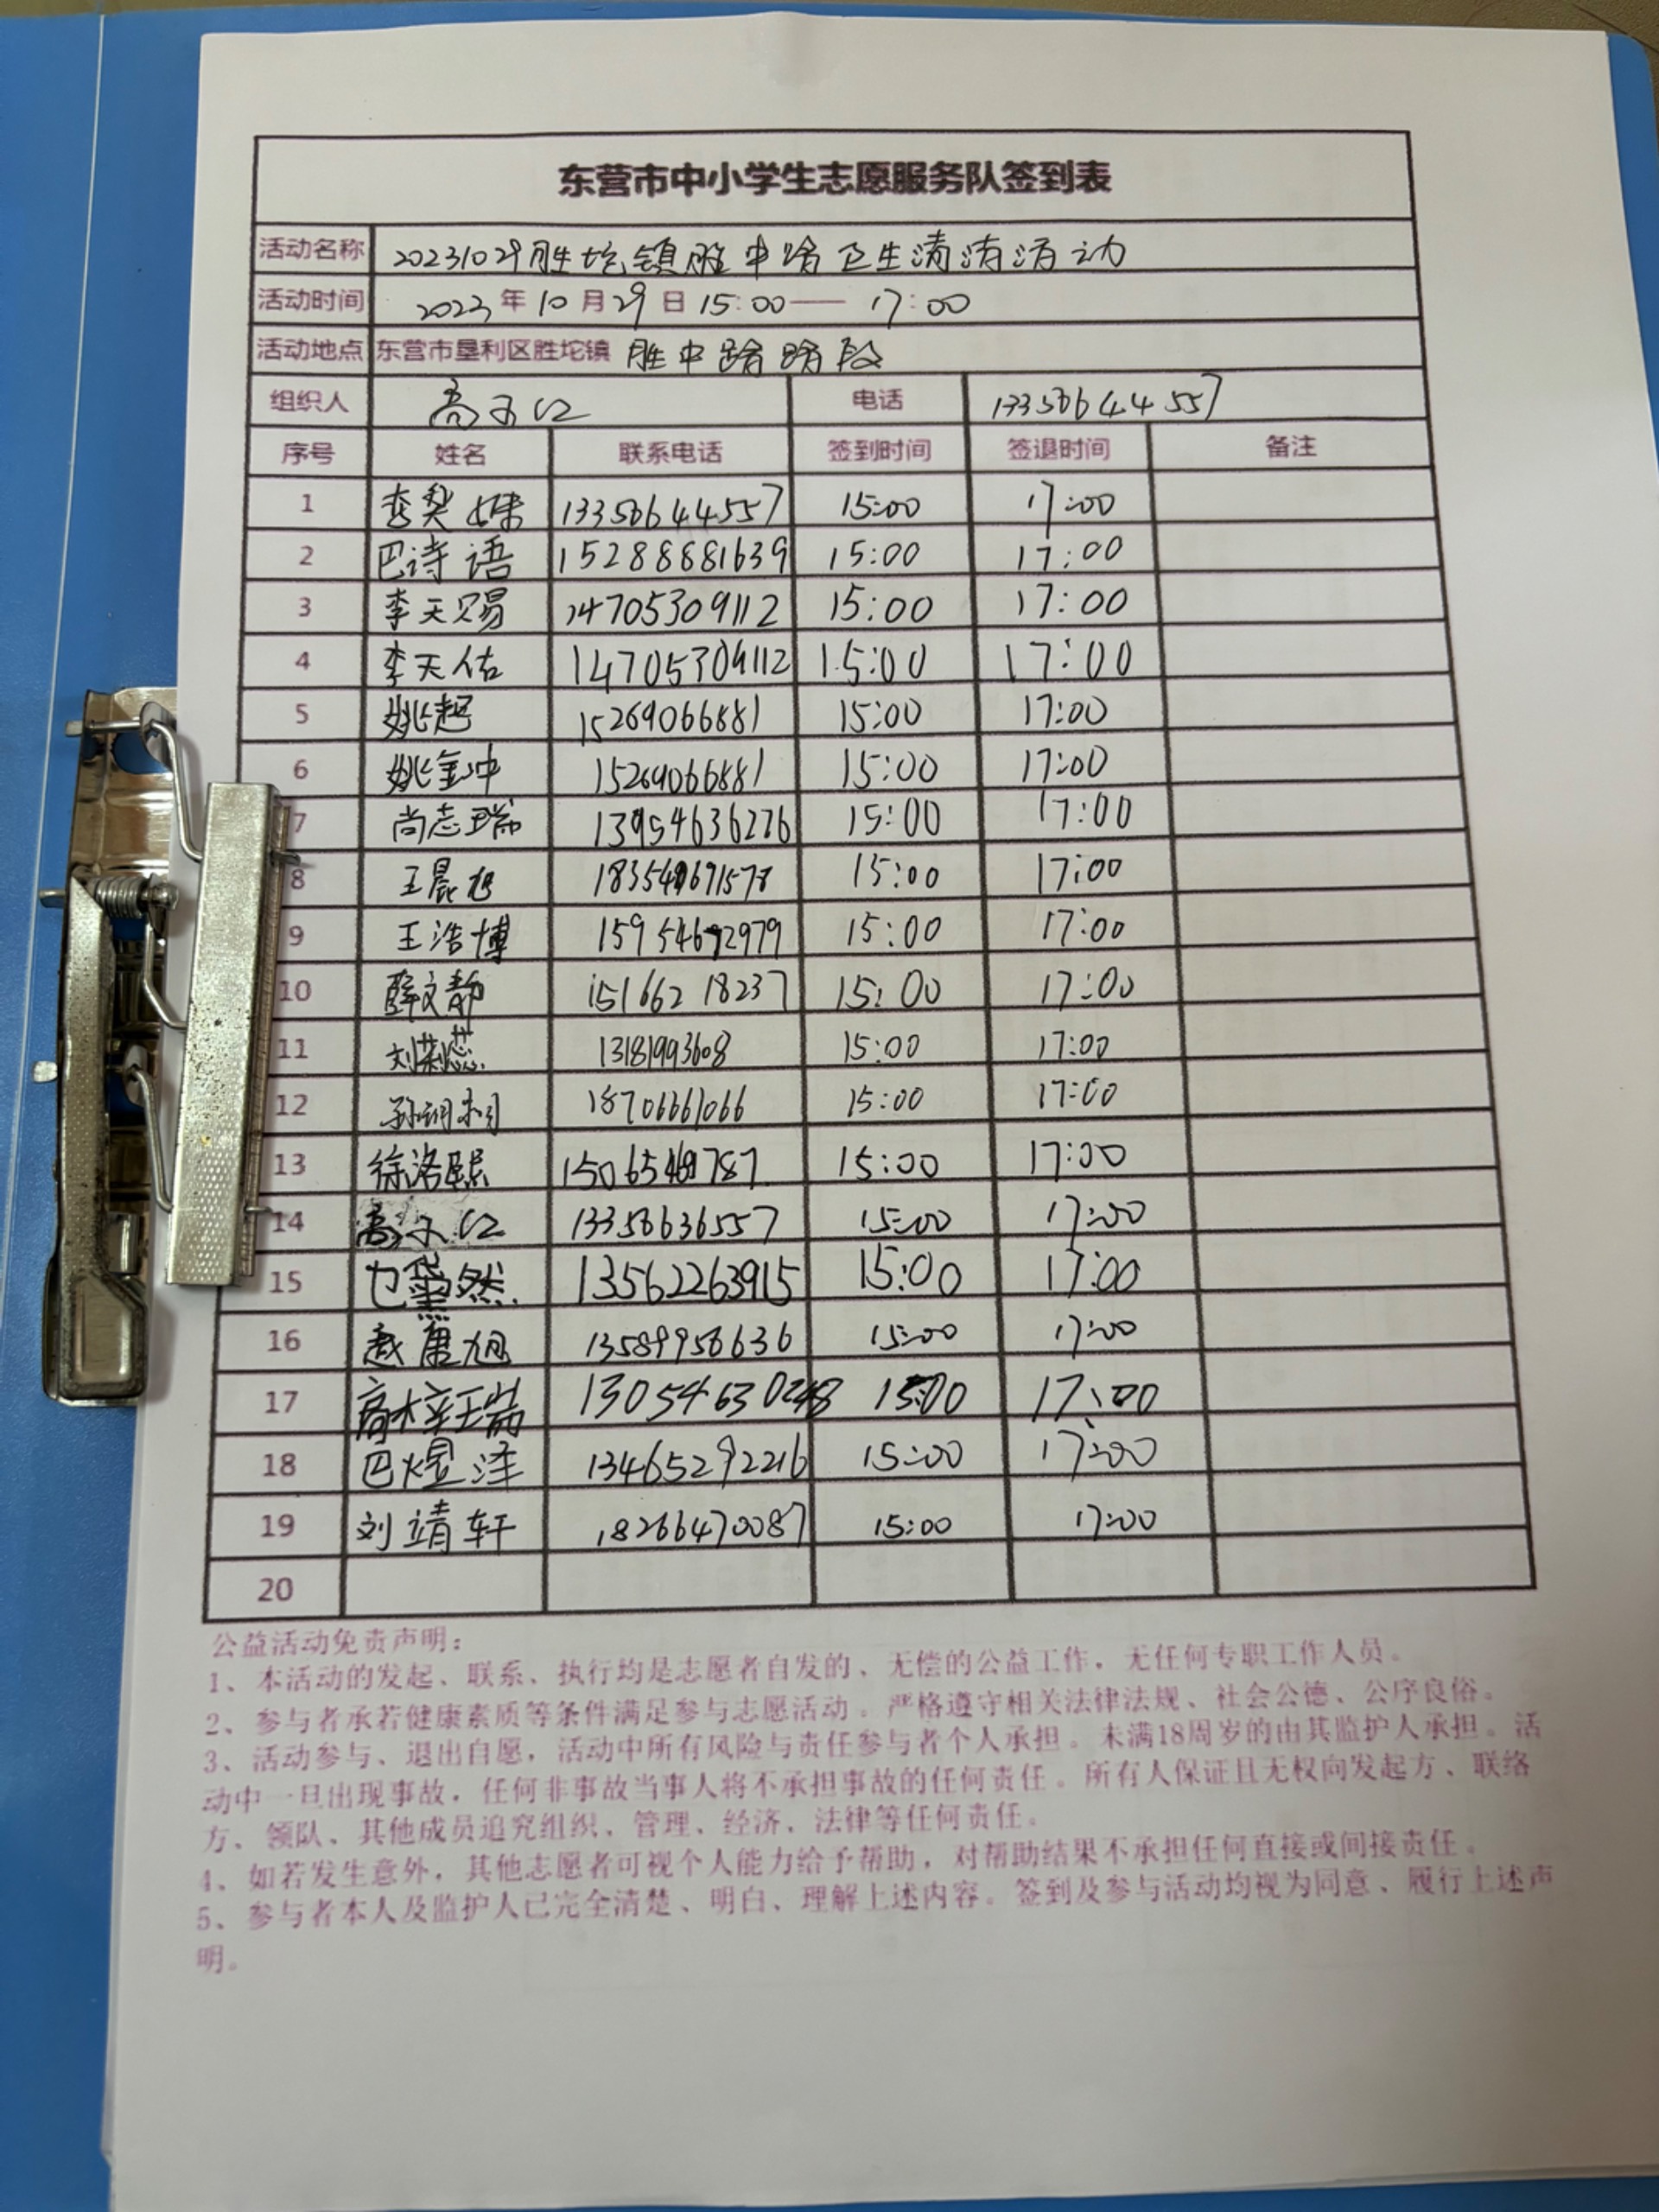 东营市中小学生志愿服务队签到表
活动名称 20231029胜坨镇胜中路卫生清洁活动
活动时间 2023年10月29日 15:00——17:00
活动地点 东营市垦利区胜坨镇 胜中路路段
组织人 高 电话 13356644557
序号 姓名 联系电话 签到时间 签退时间 备注
1 13356644557 15:00 17:00
2 巴诗语 15288881639 15:00 17:00
3 李天赐 14705309112 15:00 17:00
4 李天佑 14705309112 15:00 17:00
5 姚超 15269066881 15:00 17:00
6 姚金冲 15269066881 15:00 17:00
7 尚志瑞 13954636276 15:00 17:00
8 王晨旭 15:00 17:00
9 王浩博 15954692979 15:00 17:00
10 薛文静 15166218237 15:00 17:00
11 13181993608 15:00 17:00
12 18706661066 15:00 17:00
13 徐洛熙 15:00 17:00
14 高 13356636557 15:00 17:00
15 13562263915 15:00 17:00
16 13589956636 15:00 17:00
17 高梓瑞 15:00 17:00
18 巴煜泽 13465292216 15:00 17:00
19 刘靖轩 18266470087 15:00 17:00
20
公益活动免责声明：
1、本活动的发起、联系、执行均是志愿者自发的、无偿的公益工作，无任何专职工作人员。
2、参与者承若健康素质等条件满足参与志愿活动。严格遵守相关法律法规、社会公德、公序良俗。
3、活动参与、退出自愿，活动中所有风险与责任参与者个人承担。未满18周岁的由其监护人承担。活
动中一旦出现事故，任何非事故当事人将不承担事故的任何责任。所有人保证且无权向发起方、联络
方、领队、其他成员追究组织、管理、经济、法律等任何责任。
4、如若发生意外，其他志愿者可视个人能力给予帮助，对帮助结果不承担任何直接或间接责任。
5、参与者本人及监护人已完全清楚、明白、理解上述内容。签到及参与活动均视为同意、履行上述声
明。